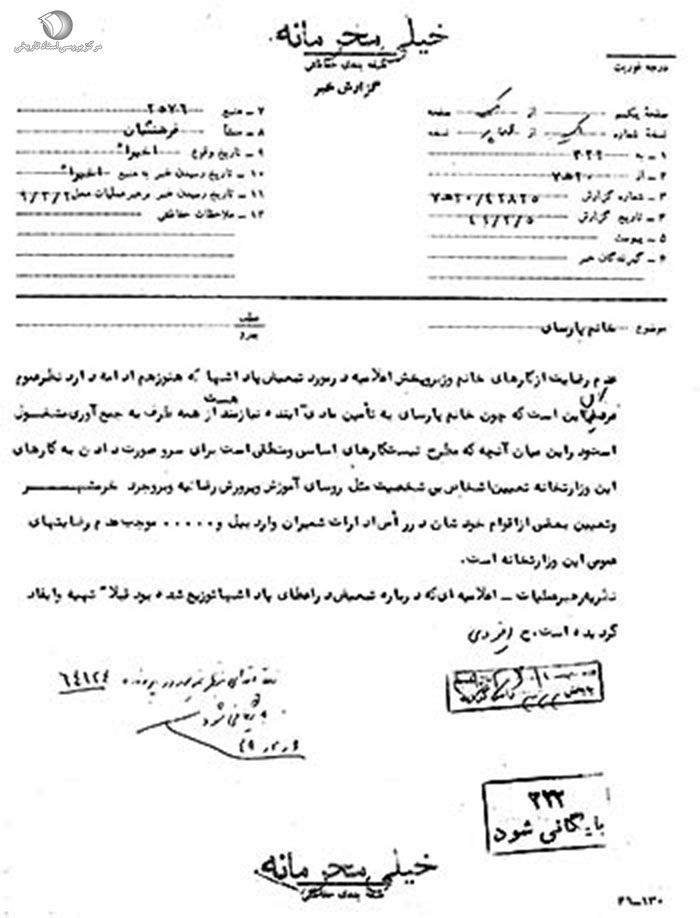 مرکز بررسی اسناد تاریخی
خیلی محرمانه
طبقه بندی حفاظتی
گزارش خبر
درجه فوریت
صفحه یکم از یک صفحه
نسخه شماره از نسخه
۱ - به ۳۲۲
۲ - از ۲۰ هـ ۷
۳ - شماره گزارش ۴۲۸۲۵ / ۲۰ هـ ۷
۴ - تاریخ گزارش ۴۹/۲/۵
۵ - پیوست
۶ - گیرندگان خبر
۷ - منبع ۲۵۷۶
۸ - منشأ فرهنگیان
۹ - تاریخ وقوع اخیراً
۱۰ - تاریخ رسیدن خبر به منبع اخیراً
۱۱ - تاریخ رسیدن خبر به رهبر عملیات محل
۱۲ - ملاحظات حفاظتی
موضوع خانم پارسای
عطف
پیرو
عدم رضایت از کارهای خانم وزیر و پخش اعلامیه در مورد تبعیض پاداشها که هنوز هم ادامه دارد نظر عموم
این است که چون خانم پارسای به تأمین مادی آینده نیازمند است از همه طرف به جمع آوری مشغول
است و در این میان آنچه که مطرح نیست کارهای اساسی و منطقی است برای سر و صورت دادن به کارهای
این وزارتخانه تعیین اشخاص بی شخصیت مثل روسای آموزش و پرورش رضائیه و بروجرد خرمشهر
و تعیین بعضی از اقوام خودشان در رأس ادارات شمیران و اردبیل و ..... موجب عدم رضایتهای
عمومی این وزارتخانه است.
نظریه رهبر عملیات - اعلامیه ای که درباره تبعیض در اعطای پاداشها توزیع شده بود قبلاً تهیه و ایفاد
گردیده است. ح
۶۴۱۲۴
۳۲۲
بایگانی شود
خیلی محرمانه
طبقه بندی حفاظتی
۲۱-۱۳۰